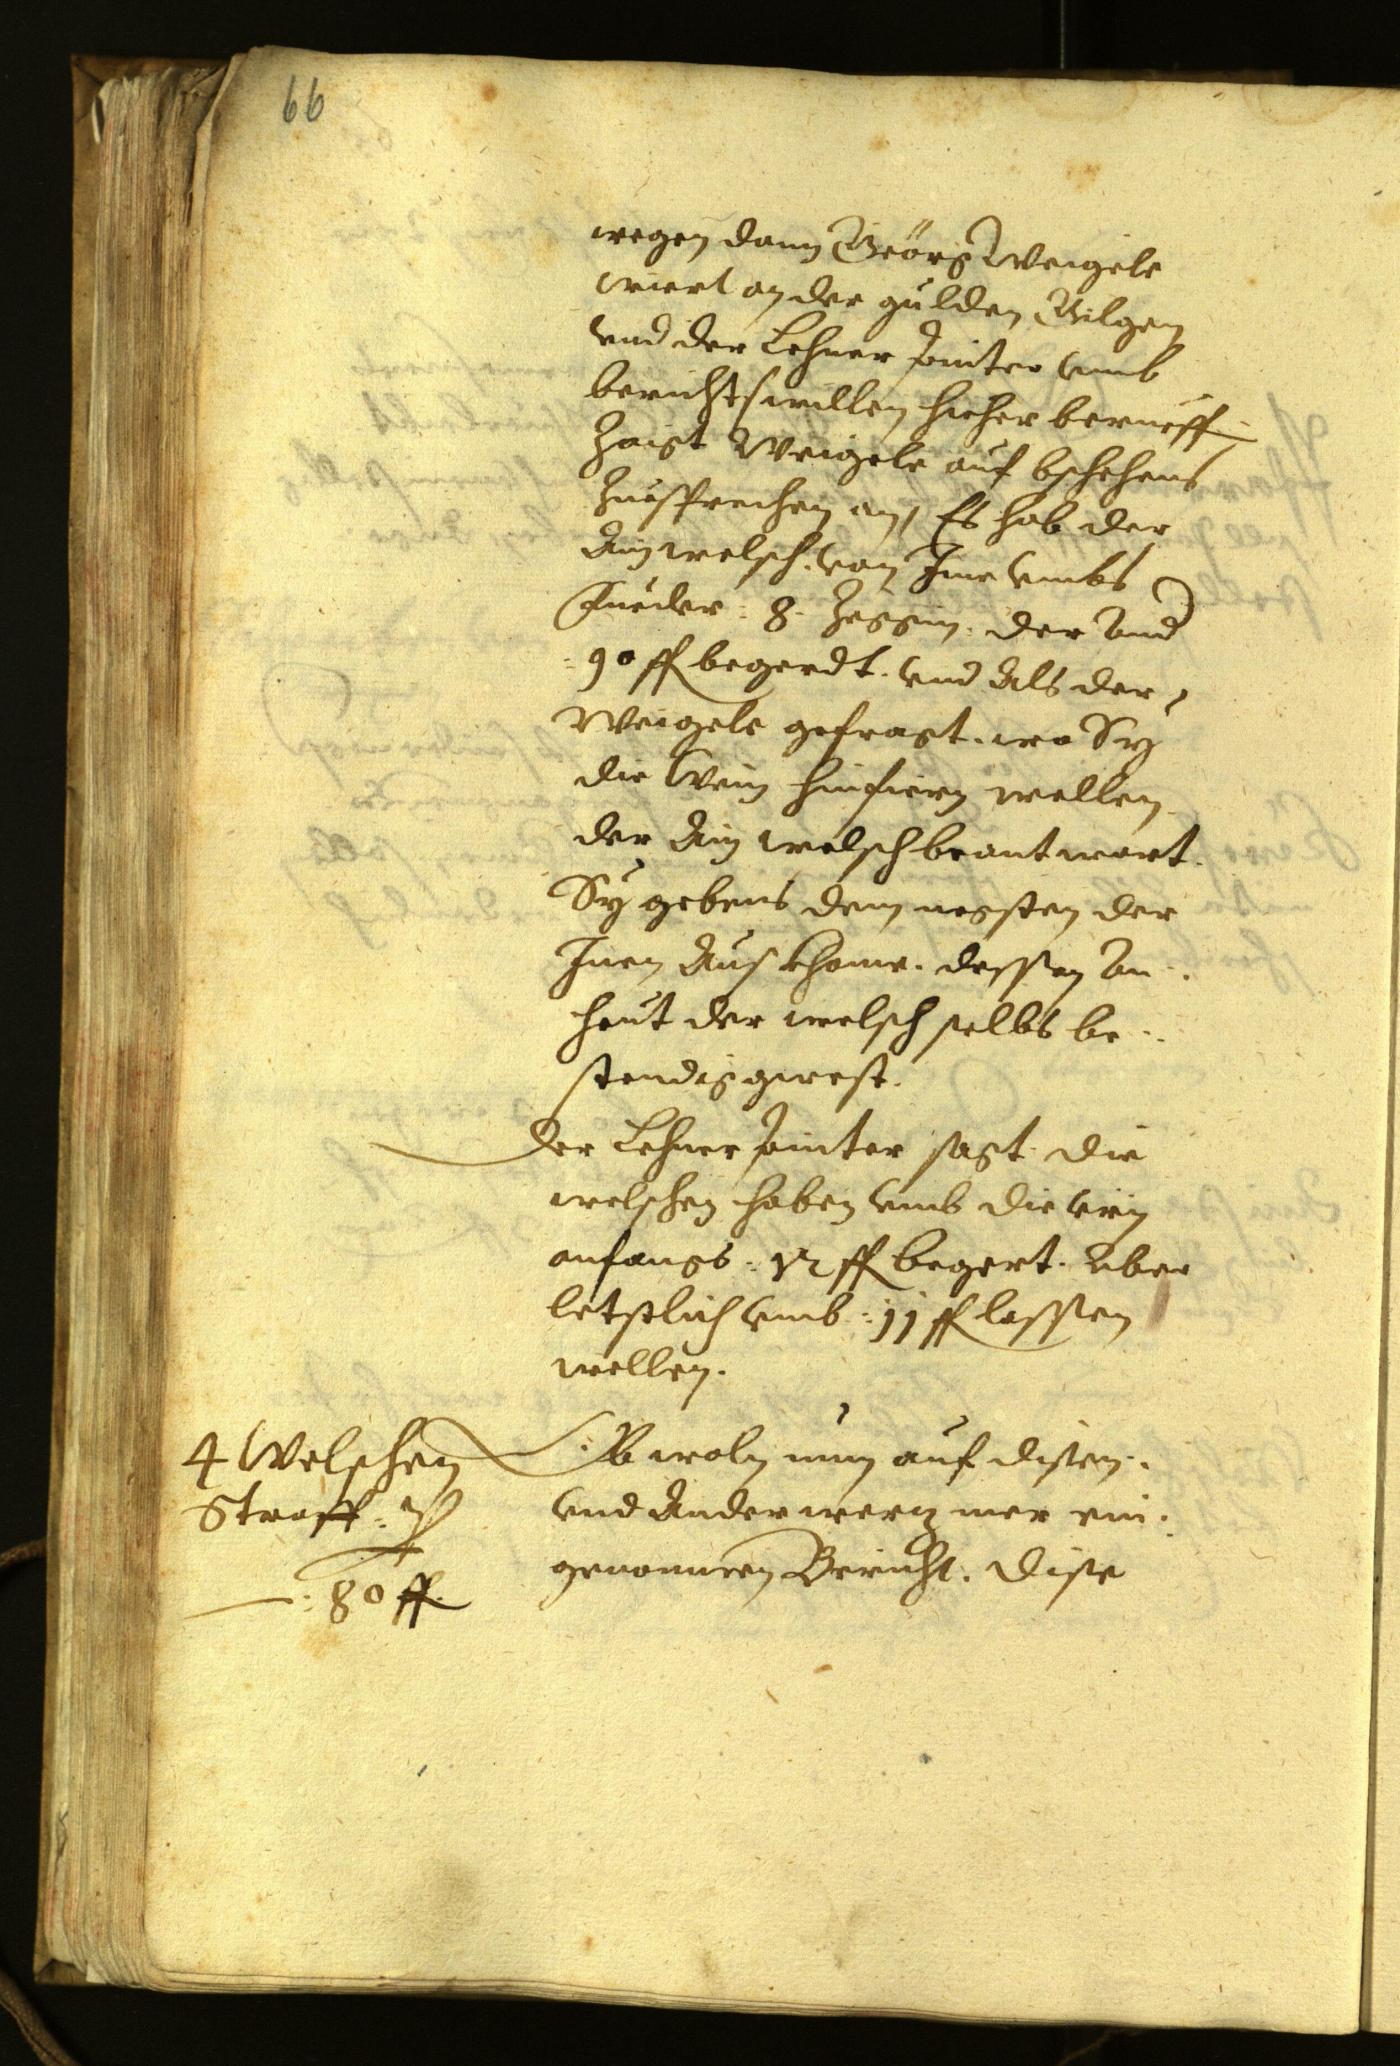 66
wegen dann Geörg Weigele
wiert an der gulden Gilgen
vnd der Lehner Jninter vmb
berichtswillen hieher berueff
Zaigt Weigele auf bschehens
Zuesprechen an, Es hab der
Ain welsch. von Ime vmbs
Fueder. 8. Zeggin. der And
90 ff begerdt. vnd Als der
Weigele gefragt. wo Sy
die Wein hinfiern wellen
der Ain welsch beantwort.
Sy gebens dem negsten der
Inen Aus khome. dessen An
heut der welsch selbs be
stendig gwest.
Der Lehner Jninter sagt die
welschen haben vmb die vrn
anfangs. 12 ff begert. Aber
letstlich vmb. 11 ff lassen
wellen.
4 Welschen
Straff.
80 ff.
Ob woln nun auf disen.
vnd Anderwerz mer ein.
genommen Bericht. dise